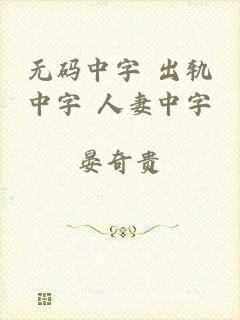 无码中字 出轨
中字 人妻中字
晏奇贵